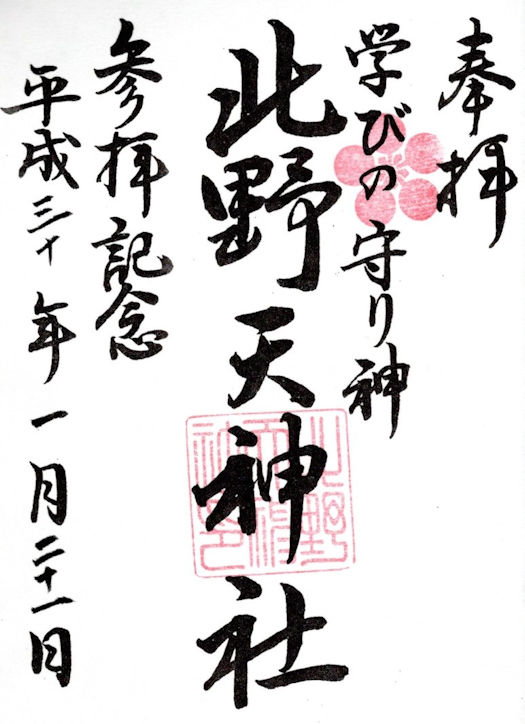 奉拝
学びの守り神
北野天神社
参拝記念
平成三十年一月二十一日